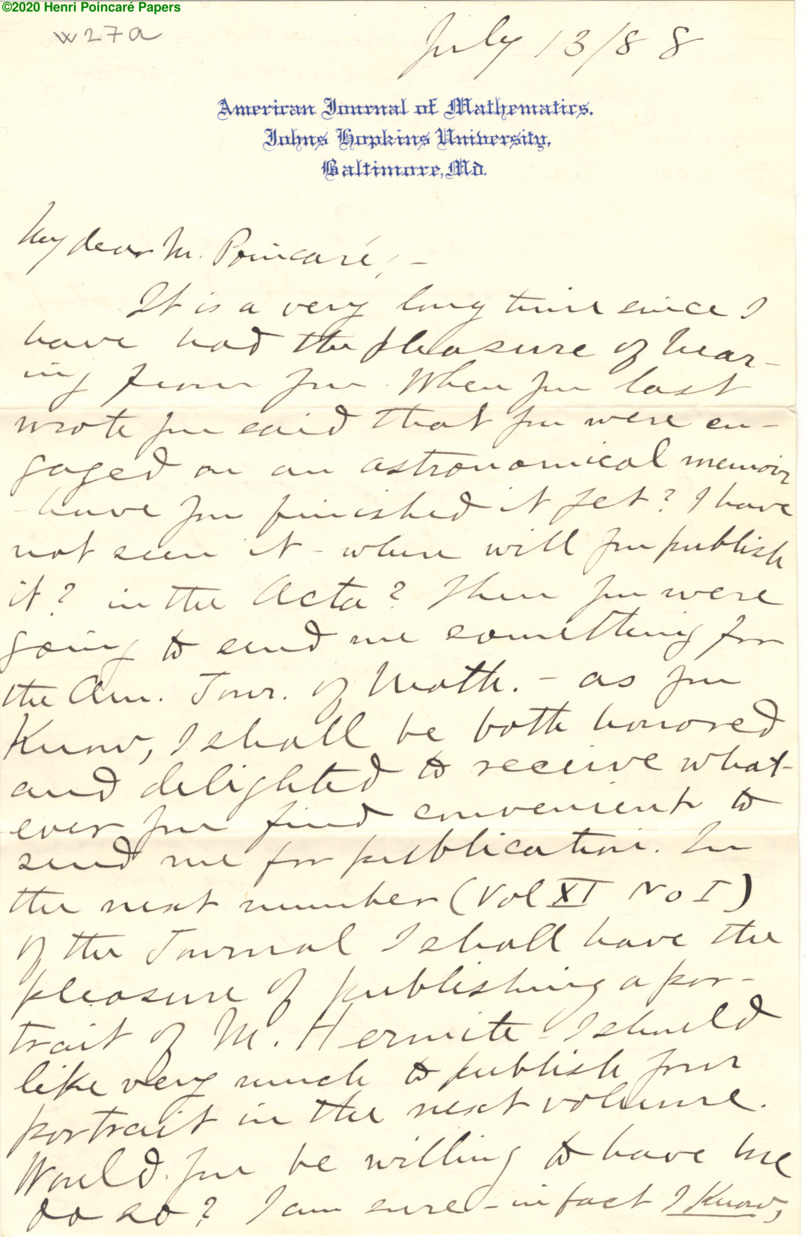 ©2020 Henri Poincaré Papers
w27a
July 13/88
American Journal of Mathematics.
Johns Hopkins University,
Baltimore, Md.
My dear M. Poincaré, –
It is a very long time since I
have had the pleasure of hear-
ing from you. When you last
wrote you said that you were en-
gaged on an astronomical memoir
– have you finished it yet? I have
not seen it – when will you publish
it? in the Acta? Then you were
going to send me something for
the Am. Jour. of Math. – as you
Know, I shall be both honored
and delighted to receive what-
ever you find convenient to
send me for publication. In
the next number (Vol XI No I)
of the Journal I shall have the
pleasure of publishing a por-
trait of M. Hermite – I should
like very much to publish your
portrait in the next volume.
Would you be willing to have me
do so? I am sure – in fact I Know,